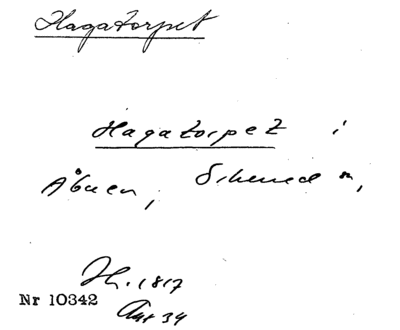 Hagatorpet
Hagatorpet i
Åbuen, Schened m,
Hh. 1817
Nr 10342
Aut 34